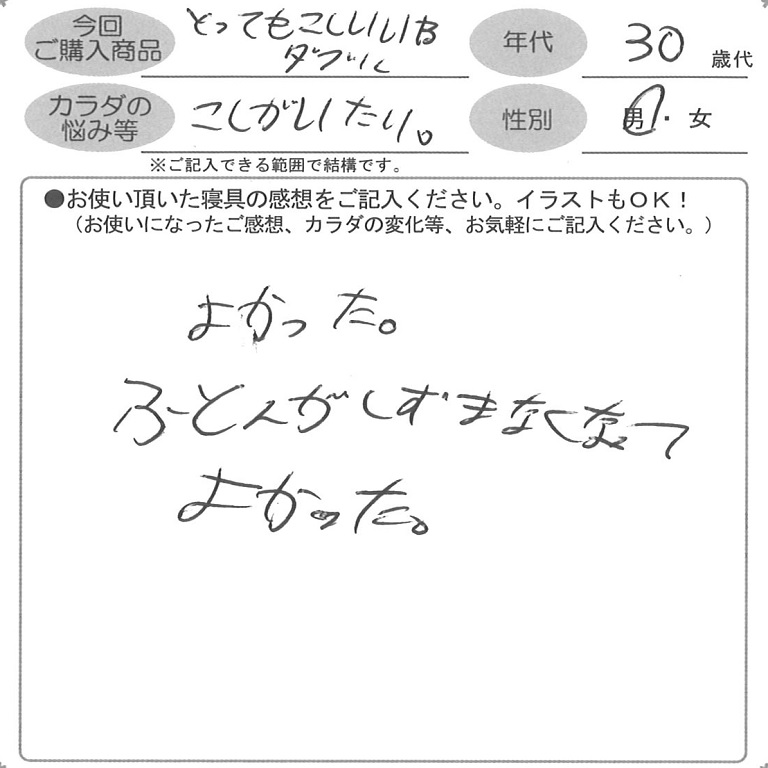 今回
ご購入商品
とってもこしいいB
ダブル
年代
30 歳代
カラダの
悩み等
こしがいたい。
性別
男・女
※ご記入できる範囲で結構です。
●お使い頂いた寝具の感想をご記入ください。イラストもOK!
(お使いになったご感想、カラダの変化等、お気軽にご記入ください。)
よかった。
ふーとんがしずまなくなって
よかった。